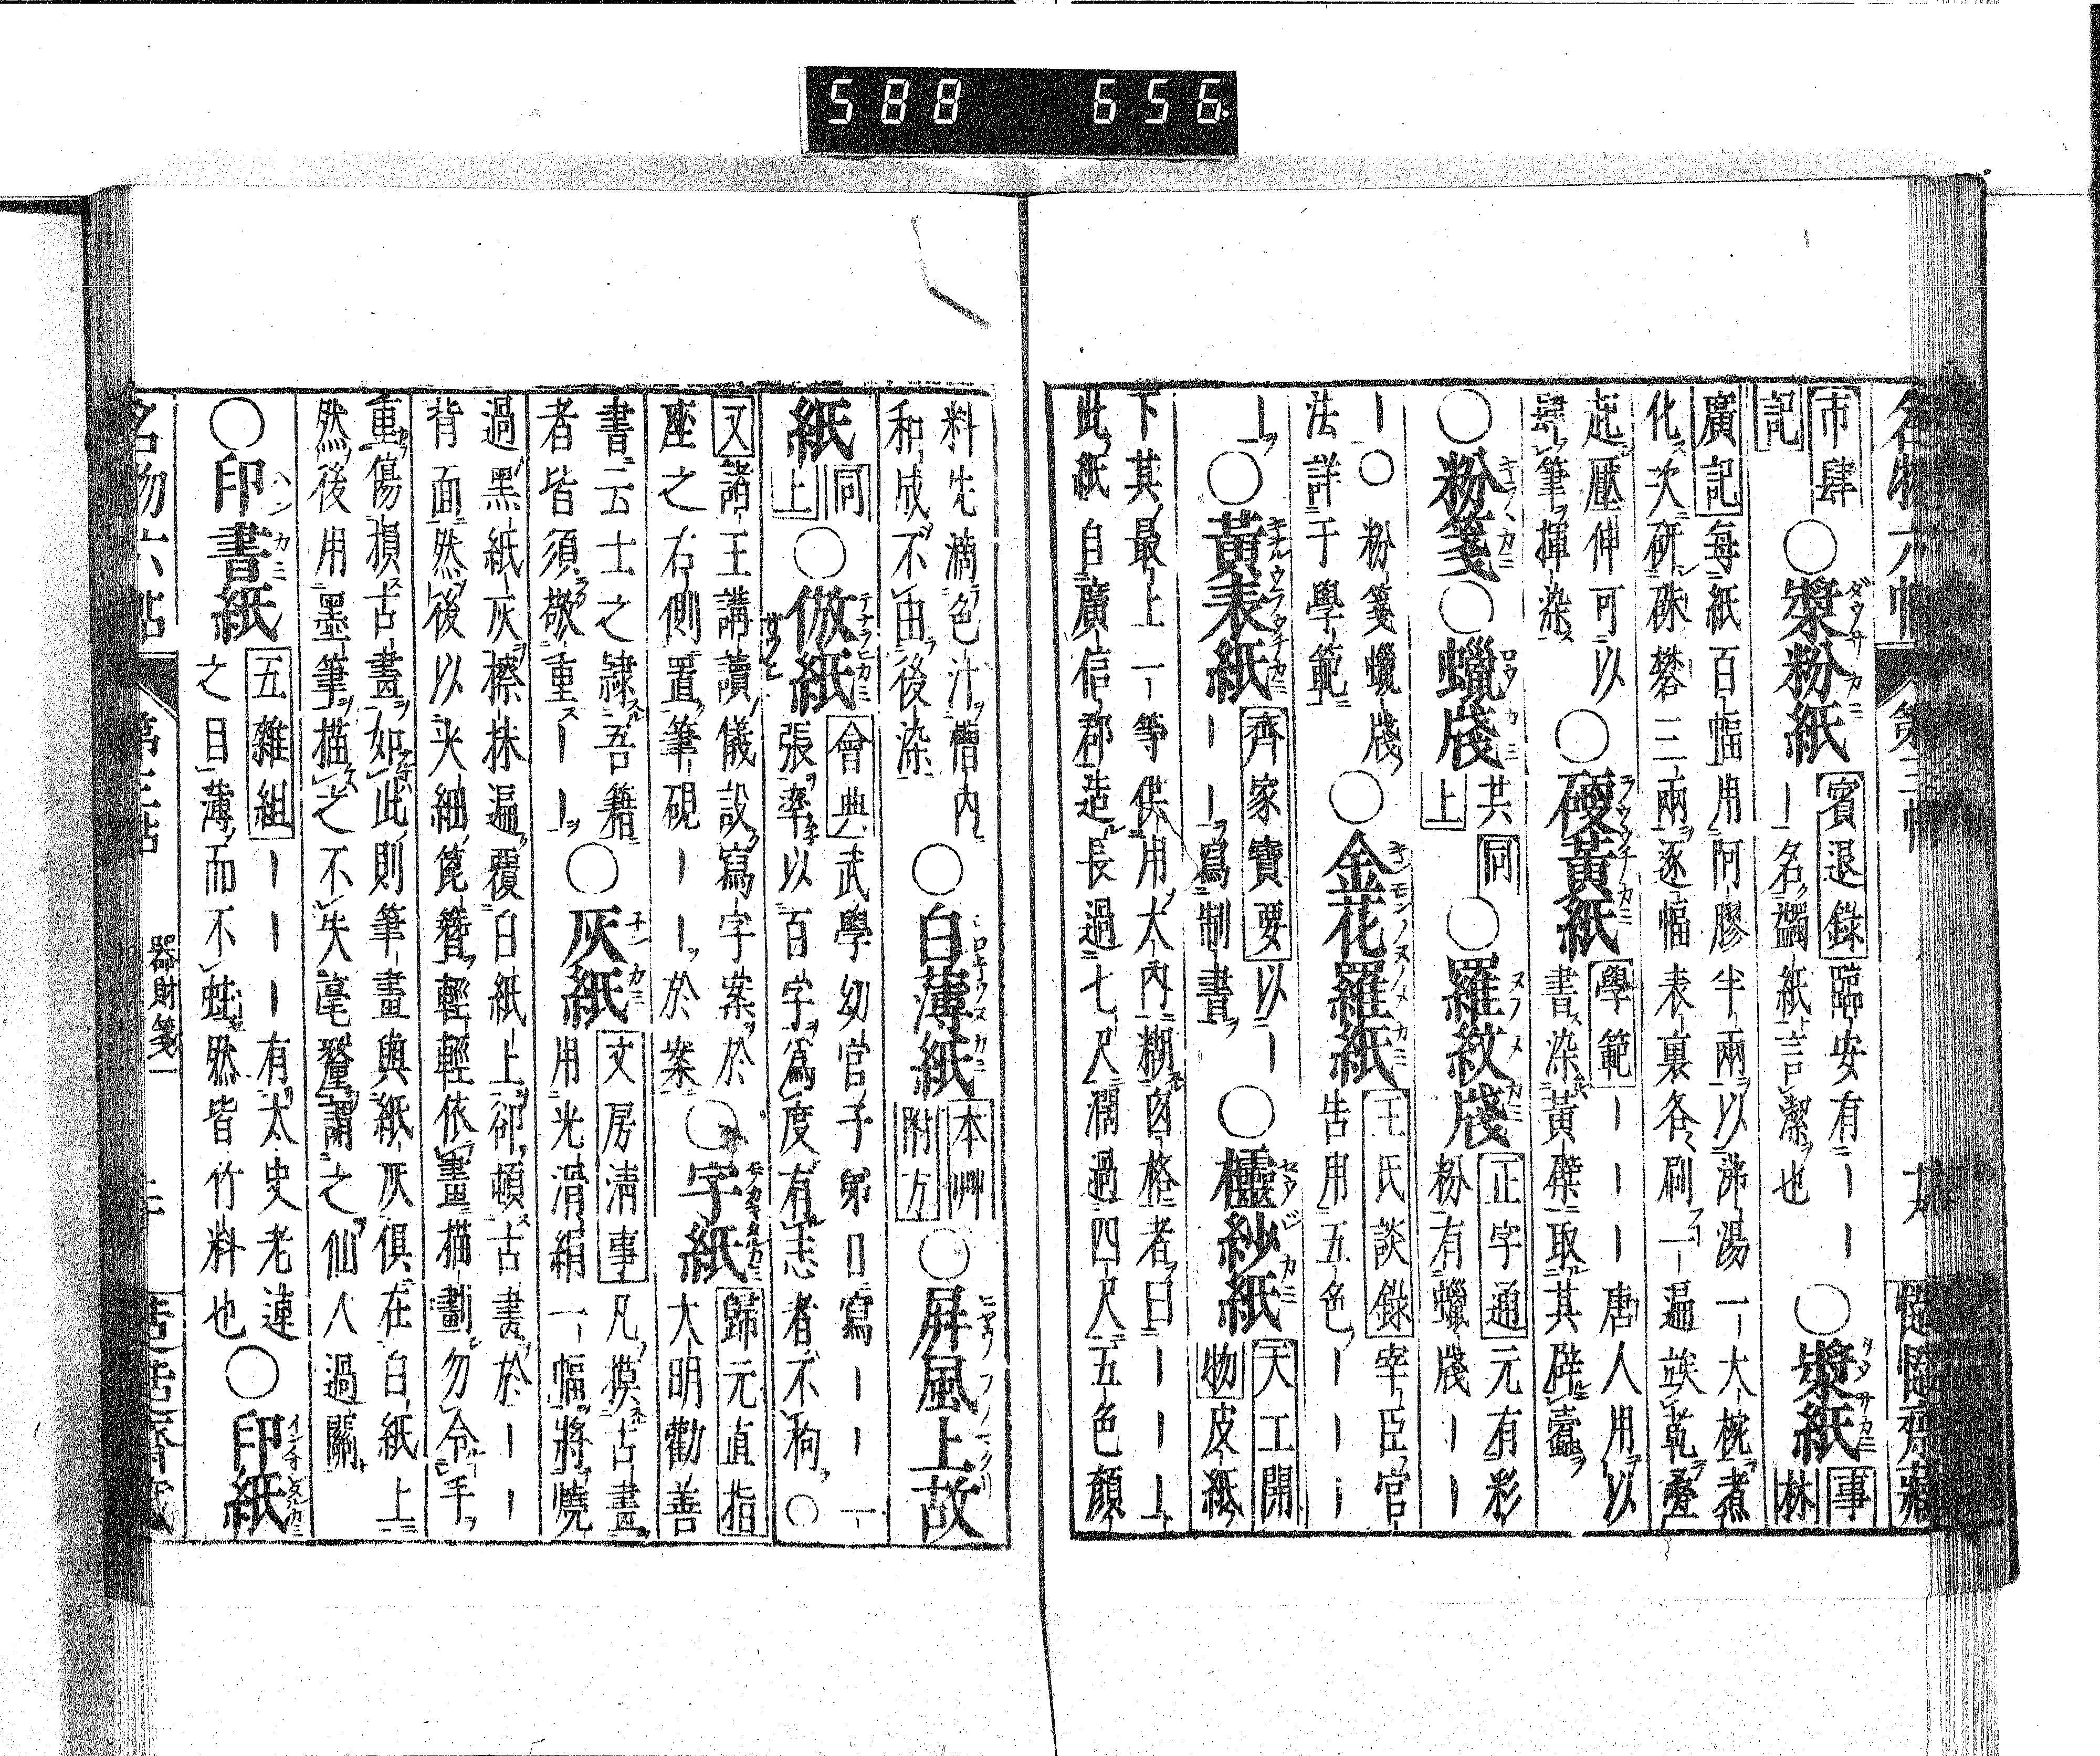 588 656
名物六帖 第三帖 十九
市肆記 ○漿粉紙 賓退錄 臨安有｜｜｜名蠲紙言潔也 ○漿紙 事林
廣記 每紙百幅用阿膠半兩以沸湯一大椀煮
化次研硃礬三兩逐幅表裏各刷一遍候乾疊
起壓伸可以肆筆揮染 ○硬黃紙 學範 ｜｜｜唐人用以書染黃檗取其辟蠹
○粉箋 ○蠟牋 共同上 ○羅紋牋 正字通 元有彩粉有蠟牋｜｜
｜○粉箋蠟牋法詳于學範 ○金花羅紙 王氏談錄 宰臣官告用五色｜｜｜｜
｜ ○黃表紙 齊家寶要 以｜｜｜寫制書 ○櫺紗紙 天工開物 皮紙
下其最上一等供用大內糊窗格者曰｜｜｜
此紙自廣信郡造長過七尺濶過四尺五色顏
料先滴色汁槽內和成不由後染 ○白薄紙 本艸附方 ○屏風上故
紙 同上 ○倣紙 會典 武學幼官子弟日寫｜｜一張率以百字爲度有志者不拘○
又 諸王講讀儀設寫字案於座之右側置筆硯｜｜於案 ○字紙 歸元直指 大明勸善
書云士之隷吾籍者皆須敬重｜｜ ○灰紙 文房清事 凡摸古畫用光滑絹一幅將燒
過黑紙灰擦抹遍覆白紙上卻頓古畫於｜｜
背面然後以夾細篦簪輕輕依畫描劃勿令手
重傷損古畫如此則筆畫與紙灰俱在白紙上
然後用墨筆描之不失毫釐謂之仙人過關
○印書紙 五雜組 ｜｜｜有太史老連之目薄而不蛀然皆竹料也 ○印紙
名物六帖 第三帖 器財箋一